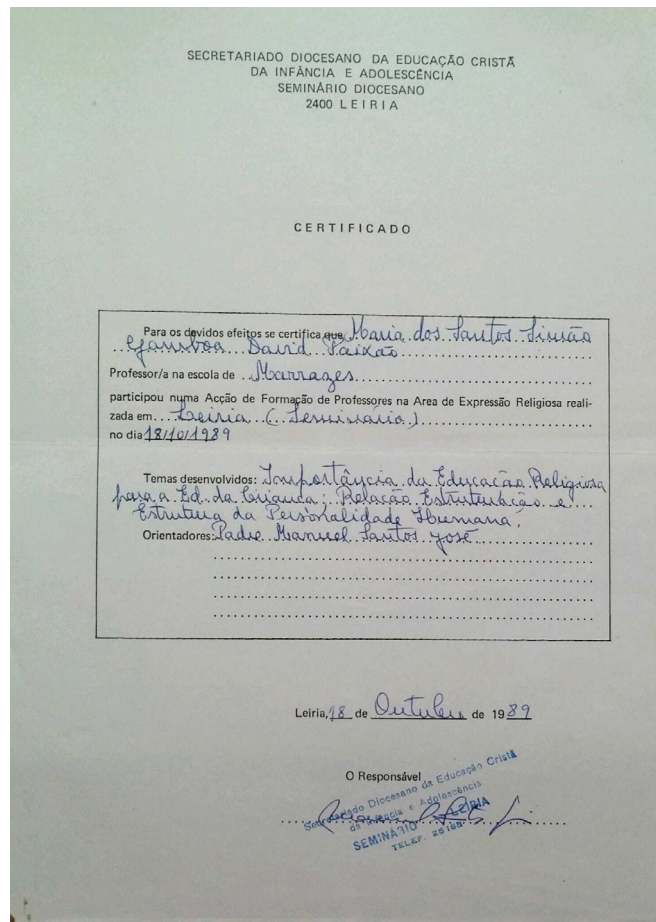 SECRETARIADO DIOCESANO DA EDUCAÇÃO CRISTÃ
DA INFÂNCIA E ADOLESCÊNCIA
SEMINÁRIO DIOCESANO
2400 LEIRIA
CERTIFICADO
Para os devidos efeitos se certifica que Maria dos Santos Simão
Gamboa David Paixão
Professor/a na escola de Marrazes
participou numa Acção de Formação de Professores na Area de Expressão Religiosa reali-
zada em Leiria (Seminário)
no dia 18/10/1989
Temas desenvolvidos: Importância da Educação Religiosa
para a Ed. da Criança; Relação Estruturação e
Estrutura da Personalidade Humana.
Orientadores: Padre Manuel Santos José
Leiria, 18 de Outubro de 1989
O Responsável
Secretariado Diocesano da Educação Cristã
da Infância e Adolescência
SEMINÁRIO LEIRIA
TELEF. 25165